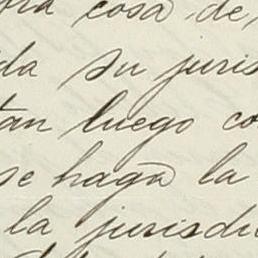 cosa de,
da su juris
tan luego co
se haga la
la jurisdi